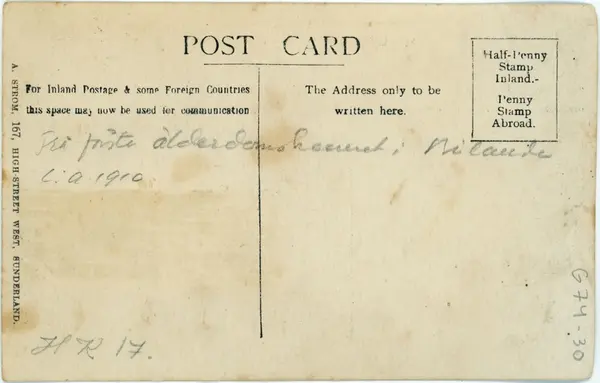 POST CARD
For Inland Postage & some Foreign Countries
this space may now be used for communication
The Address only to be
written here.
Half-Penny
Stamp
Inland.-
Penny
Stamp
Abroad.
A. STROM, 167, HIGH-STREET WEST, SUNDERLAND.
i
1910
H K 17.
G74-30